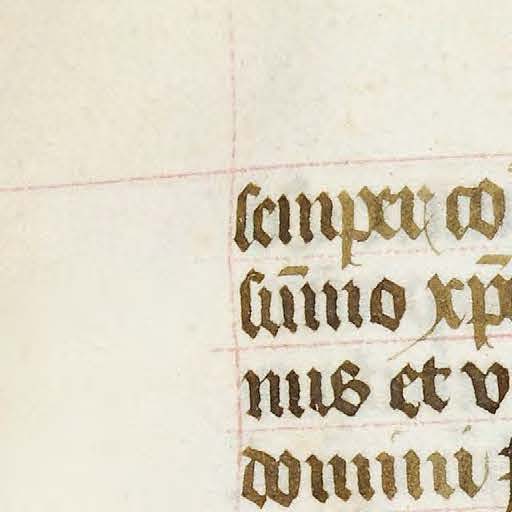 semper co
sūmo xp̄
nus et v
domini